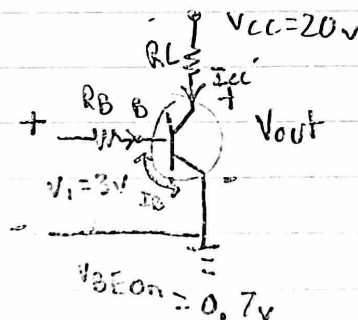 VCC=20v
RL
Icc
+
RB B
+
Vout
V1=3v IB
-
-
VBEon = 0.7v